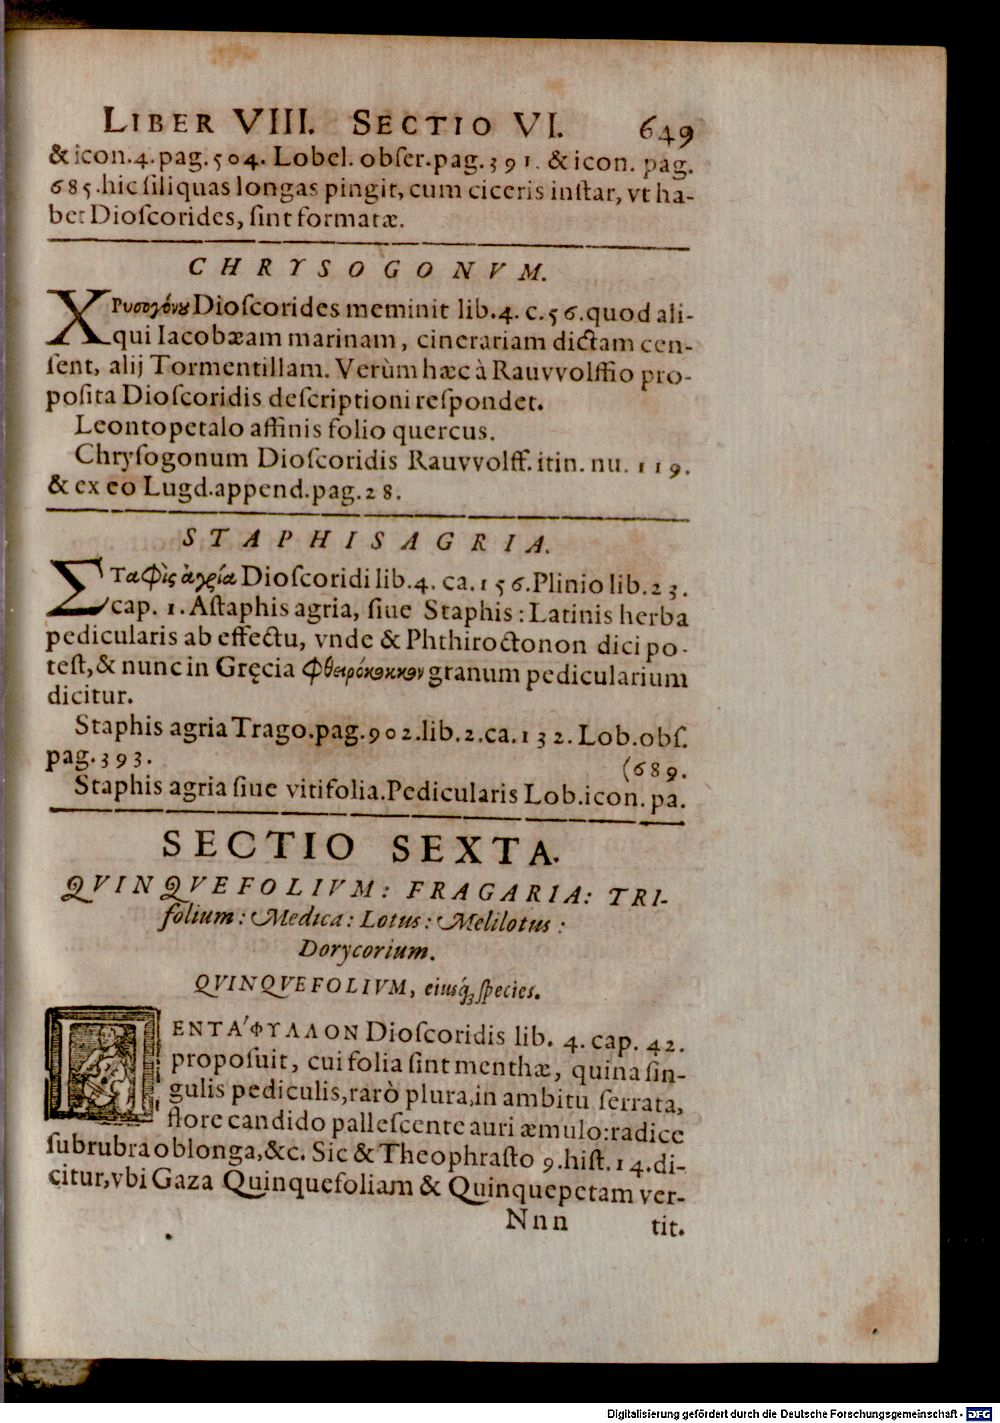 LIBER VIII. SECTIO VI. 649
& icon.4.pag.504. Lobel. obſer.pag.391. & icon. pag.
685.hic ſiliquas longas pingit, cum ciceris inſtar, vt ha-
bet Dioſcorides, ſint formatæ.
CHRYSOGONVM.
ΧΡυσογόνȣ Dioſcorides meminit lib.4. c.56.quod ali-
qui Iacobæam marinam, cinerariam dictam cen-
ſent, alij Tormentillam. Verùm hæc à Rauvvolffio pro-
poſita Dioſcoridis deſcriptioni reſpondet.
Leontopetalo affinis folio quercus.
Chryſogonum Dioſcoridis Rauvvolff. itin. nu. 119.
& ex eo Lugd.append.pag.28.
STAPHISAGRIA.
ΣΤαφὶς ἀγρία Dioſcoridi lib.4. ca.156.Plinio lib.23.
cap. 1. Aſtaphis agria, ſiue Staphis: Latinis herba
pedicularis ab effectu, vnde & Phthiroctonon dici po-
teſt,& nunc in Gręcia φθειρόκοκκον granum pedicularium
dicitur.
Staphis agria Trago.pag.902.lib.2.ca.132. Lob.obſ.
pag.393.
(689.
Staphis agria ſiue vitifolia.Pedicularis Lob.icon. pa.
SECTIO SEXTA.
QVINQVEFOLIVM: FRAGARIA: TRI-
folium: Medica: Lotus: Melilotus:
Dorycorium.
QVINQVEFOLIVM, eiusq́; ſpecies.
ΠΕΝΤΑ'ΦΥΛΛΟΝ Dioſcoridis lib. 4. cap. 42.
propoſuit, cui folia ſint menthæ, quina ſin-
gulis pediculis,rarò plura,in ambitu ſerrata,
flore candido palleſcente auri æmulo:radice
ſubrubra oblonga,&c. Sic & Theophraſto 9.hiſt.14.di-
citur,vbi Gaza Quinquefoliam & Quinquepetam ver-
Nnn tit.
Digitalisierung gefördert durch die Deutsche Forschungsgemeinschaft - DFG